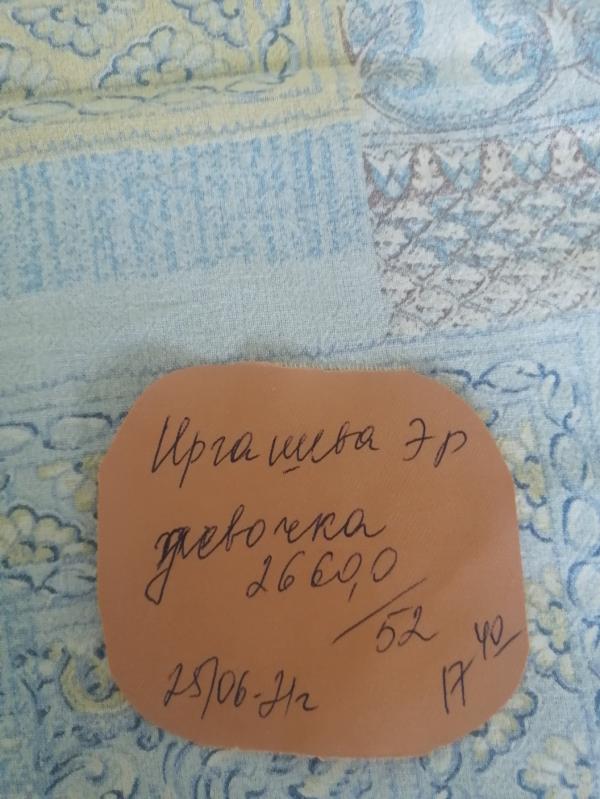 Иргашева Эр
девочка
2660,0
52
25/06-21г 17 40